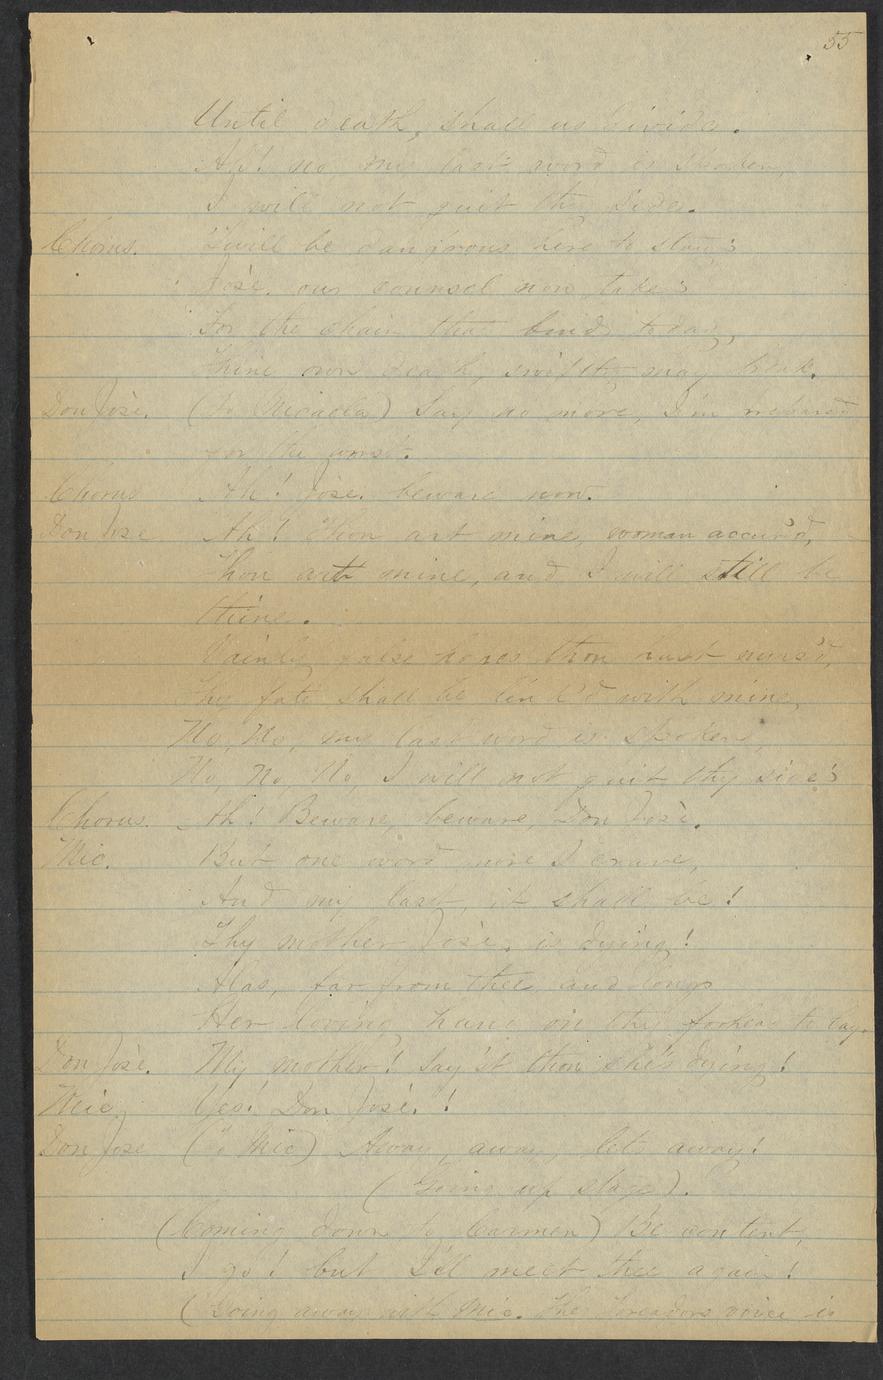 55
Until death, shall us divide.
Ah! no, my last word is spoken,
I will not quit thy side.
Chorus. 'Twill be dang'rous here to stay;
José, our counsel now take;
For the chain that binds today,
Thine own death, swiftly may break.
Don José. (To Micaela) Say no more, I'm prepared
for the worst.
Chorus Ah! José. beware now.
Don José Ah! Thou art mine, woman accurs'd,
Thou art mine, and I will still be
thine.
Vainly false hopes thou hast nurs'd,
Thy fate shall be link'd with mine,
No, No, my last word is spoken,
No, No, No, I will not quit thy side;
Chorus. Ah! Beware, beware, Don José.
Mic. But one word more I crave,
And my last, it shall be!
Thy mother José, is dying!
Alas, far from thee and longs
Her loving hand on thy forhead to lay.
Don José. My mother! Say'st thou she's dying!
Mic. Yes! Don José.!
Don José (To Mic) Away, away, let's away!
(Going up stage).
(Coming down to Carmen) Be content,
I go! but I'll meet thee again!
(Going away with Mic. The Toreadors voice is